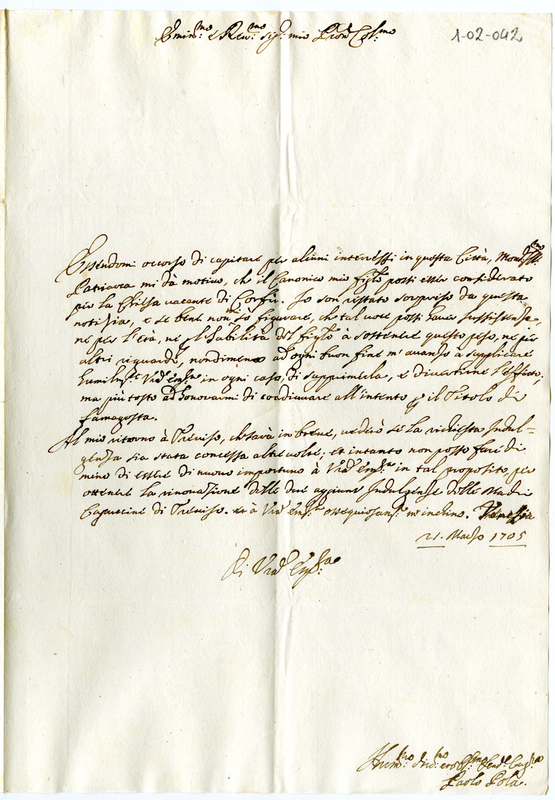 Emin.mo e Rev.mo Sig.r mio Pron Col.mo
1-02-042
Essendomi occorso di capitare per alcuni interessi in questa Città, Mons.
Patriarca mi dà motivo, che il Canonico mio figlio possi esser considerato
per la Chiesa vacante di Corfù. Io son restato sorpreso da questa
notizia, e se ben non so figurare, che tal voce possi haver sussistenza,
ne per l'età, ne l'habilità del figlio à sostener questo peso, ne per
altri riguardi, nondimeno ad ogni buon fine m'avanzo à supplicare
in ogni caso, di supprimerla, e divertirne l'effetto,
ma più tosto ad honorarmi di coadiuvare all'intento il Titolo di
famagosta.
Al mio ritorno à Treviso, che sarà in breve, vedrò se la richiesta Indul-
genza sia stata concessa altre volte, et intanto non posso far di
meno di esser di nuovo importuno à V. Em.a in tal proposito per
ottener la rinovazione delle due Indulgenze delle Madri
Capuccine di Treviso. et à V. Em.a ossequiosam.e m'inchino. Venezia
21. Marzo 1705
Di V. Em.a
Hum.mo
Paolo Pola.